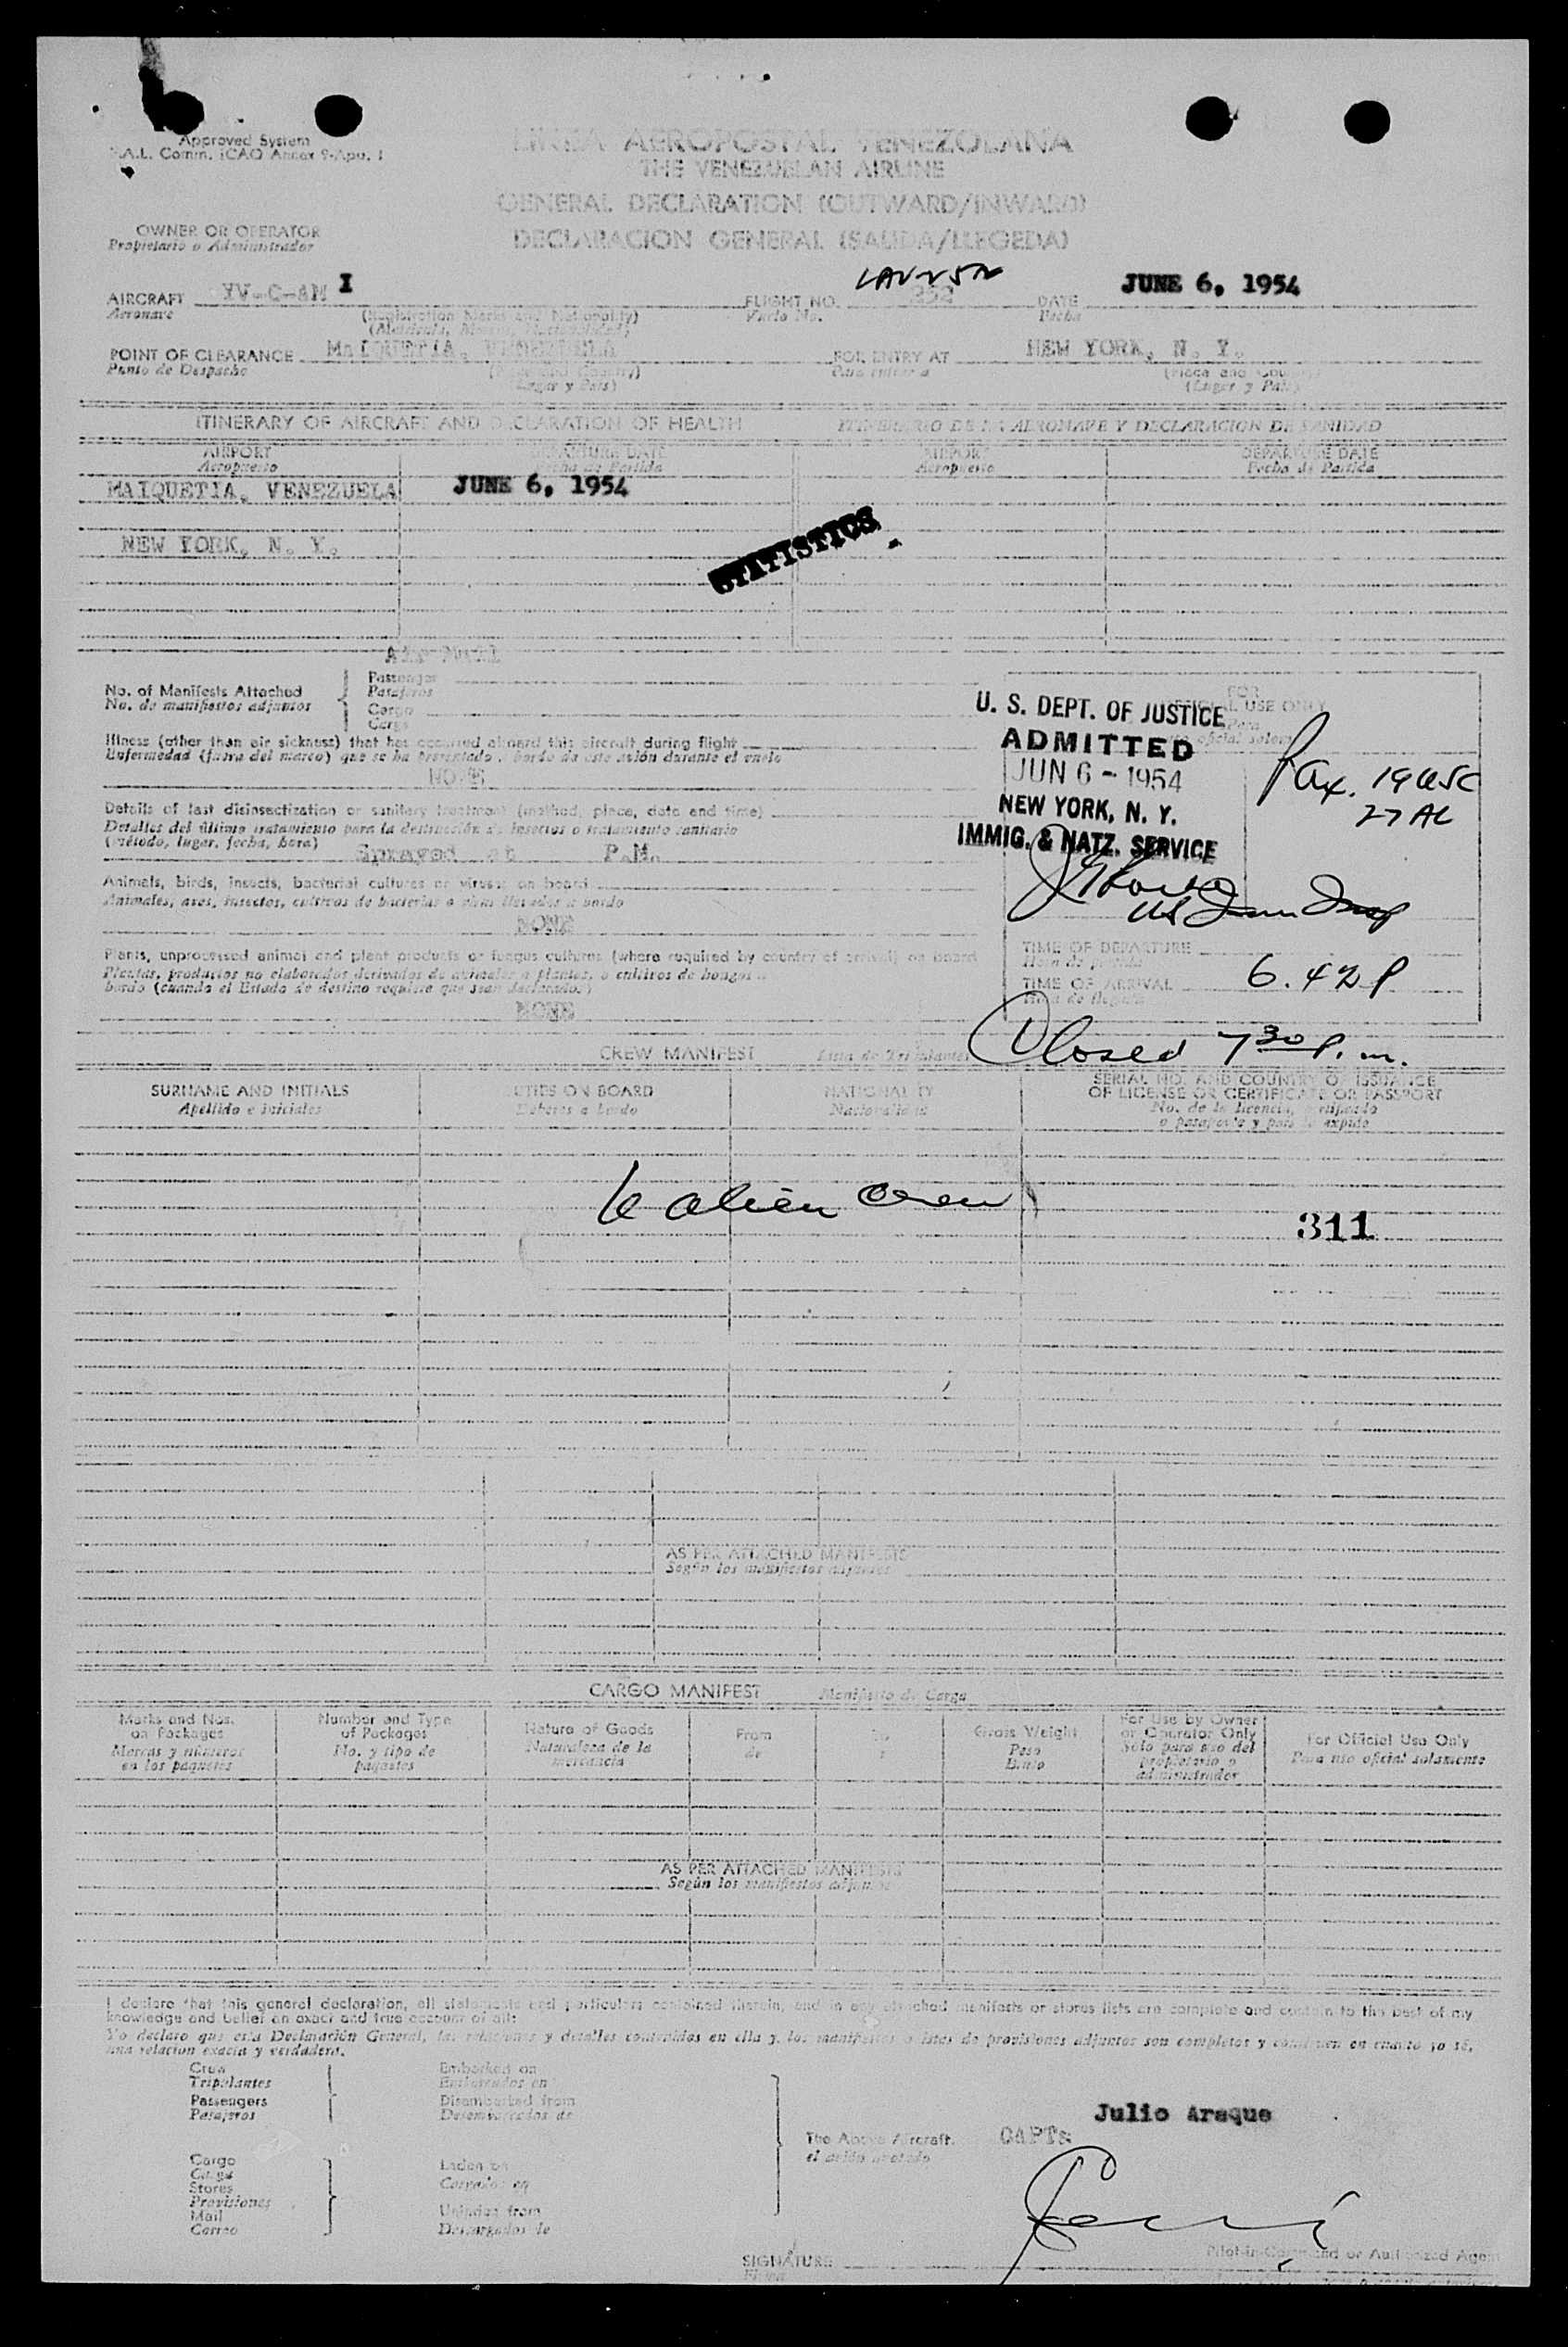 Approved System
F.A.L. Comm. ICAO Annex 9-Apu. 1
LINEA AEROPOSTAL VENEZOLANA
THE VENEZUELAN AIRLINE
GENERAL DECLARATION (OUTWARD/INWARD)
DECLARACION GENERAL (SALIDA/LLEGEDA)
OWNER OR OPERATOR
Propietario o Administrador
AIRCRAFT YV-C-AM I FLIGHT NO. 252 LAV 250 DATE JUNE 6, 1954
Aeronave (Registration Marks and Nationality) Vuelo No. Fecha
POINT OF CLEARANCE MAIQUETIA, VENEZUELA FOR ENTRY AT NEW YORK, N. Y.
Punto de Despacho (Place and Country) Para entrar a (Place and Country)
(Lugar y Pais) (Lugar y Pais)
ITINERARY OF AIRCRAFT AND DECLARATION OF HEALTH ITINERARIO DE LA AERONAVE Y DECLARACION DE SANIDAD
AIRPORT DEPARTURE DATE AIRPORT DEPARTURE DATE
Aeropuerto Fecha de Partida Aeropuerto Fecha de Partida
MAIQUETIA, VENEZUELA JUNE 6, 1954
NEW YORK, N. Y.
STATISTICS
Air Mail
No. of Manifests Attached Passenger
No. de manifiestos adjuntos Pasajeros
Cargo
Carga
Illness (other than air sickness) that has occurred aboard this aircraft during flight
Enfermedad (fuera del mareo) que se ha presentado a bordo de este avión durante el vuelo
NONE
Details of last disinsectization or sanitary treatment (method, place, date and time)
Detalles del último tratamiento para la destrucción de insectos o tratamiento sanitario
(método, lugar, fecha, hora) Sprayed at P.M.
Animals, birds, insects, bacterial cultures or viruses on board
Animales, aves, insectos, cultivos de bacterias o virus llevados a bordo
NONE
Plants, unprocessed animal and plant products or fungus cultures (where required by country of arrival) on board
Plantas, productos no elaborados derivados de animales o plantas, o cultivos de hongos a
bordo (cuando el Estado de destino requiere que sean declarados)
NONE
FOR
OFFICIAL USE ONLY
Para
uso oficial solamente
U. S. DEPT. OF JUSTICE
ADMITTED
JUN 6 - 1954
NEW YORK, N. Y.
IMMIG. & NATZ. SERVICE
Pax. 19 USC
27 AL
US Imm Insp
TIME OF DEPARTURE
Hora de partida
TIME OF ARRIVAL 6.42 P
Hora de llegada
Closed 7 30 P. m.
CREW MANIFEST Lista de Tripulantes
SURNAME AND INITIALS DUTIES ON BOARD NATIONALITY SERIAL NO. AND COUNTRY OF ISSUANCE
OF LICENSE OR CERTIFICATE OR PASSPORT
Apellido e iniciales Deberes a bordo Nacionalidad No. de la licencia, certificado
o pasaporte y país
6 alien crew
311
AS PER ATTACHED MANIFESTS
Según los manifiestos adjuntos
CARGO MANIFEST Manifiesto de Carga
Marks and Nos. on Packages
Marcas y números en los paquetes
Number and Type of Packages
No. y tipo de paquetes
Nature of Goods
Naturaleza de la mercancía
From
de
To
a
Gross Weight
Peso Bruto
For Use by Owner or Operator Only
Solo para uso del propietario o administrador
For Official Use Only
Para uso oficial solamente
AS PER ATTACHED MANIFESTS
Según los manifiestos adjuntos
I declare that this general declaration, all statements and particulars contained therein, and in any attached manifests or stores lists are complete and contain to the best of my
knowledge and belief an exact and true account of all:
Yo declaro que esta Declaración General, las relaciones y detalles contenidos en ella y los manifiestos o listas de provisiones adjuntos son completos y contienen en cuanto yo sé,
una relacion exacta y verdadera.
Crew Embarked on
Tripulantes Embarcados en
Passengers Disembarked from
Pasajeros Desembarcados de
The Above Aircraft.
el avión anotado
CAPT: Julio Araque
Cargo Laden on
Carga Cargados en
Stores
Provisiones
Mail Unladen from
Correo Descargados de
SIGNATURE
Firma
Pilot-in-Command or Authorized Agent